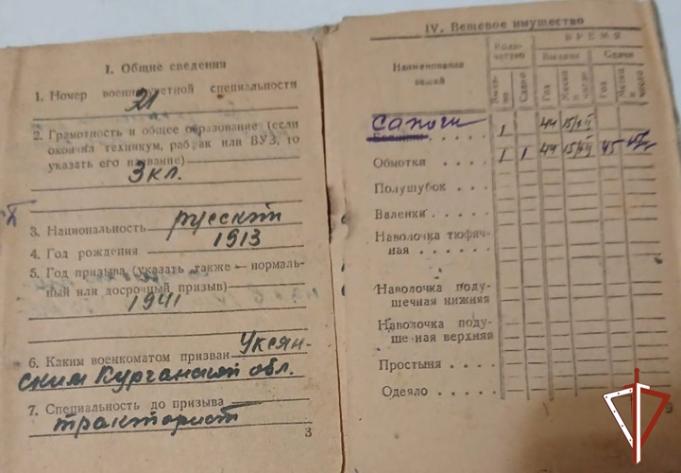 I. Общие сведения
1. Номер военно-учетной специальности
21
2. Грамотность и общее образование (если
окончил техникум, рабфак или ВУЗ, то
указать его название)
3 кл.
3. Национальность русский
4. Год рождения 1913
5. Год призыва (указать также — нормаль-
ный или досрочный призыв)
1941
6. Каким военкоматом призван Уксян-
ским Курганской обл.
7. Специальность до призыва
тракторист
3
IV. Вещевое имущество
Коли-
чество
ВРЕМЯ
Выдачи
Сдачи
Наименование
вещей
Год
Месяц
и
число
Год
Месяц
и
число
Сапоги 1 44
Ботинки
Обмотки . . . . 1 1 44 45
Полушубок . .
Валенки . . . .
Наволочка тюфяч-
ная . . . . . .
Наволочка поду-
шечная нижняя
Наволочка поду-
шечная верхняя
Простыня . . .
Одеяло . . . .
9